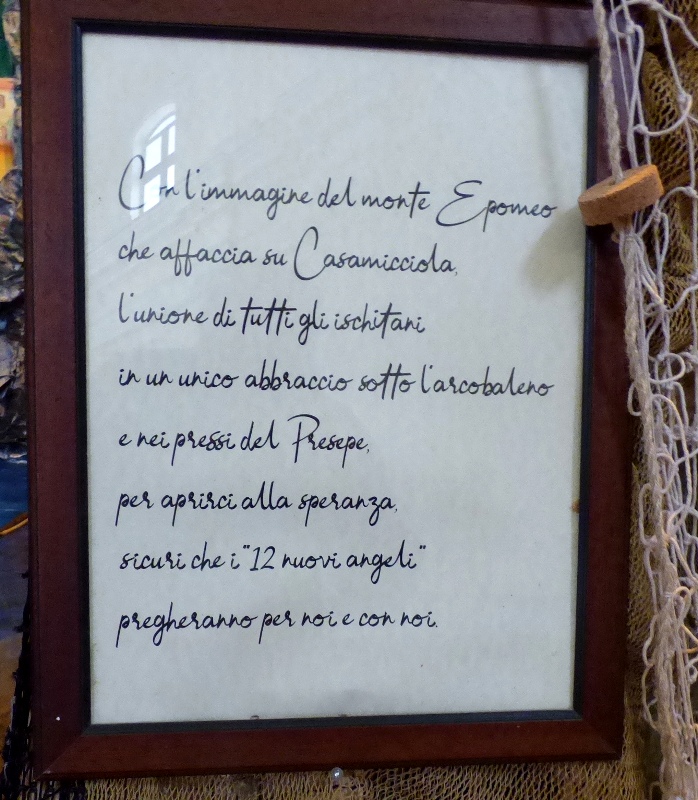 Con l'immagine del monte Epomeo
che affaccia su Casamicciola,
l'unione di tutti gli ischitani
in un unico abbraccio sotto l'arcobaleno
e nei pressi del Presepe,
per aprirci alla speranza,
sicuri che i "12 nuovi angeli"
pregheranno per noi e con noi.